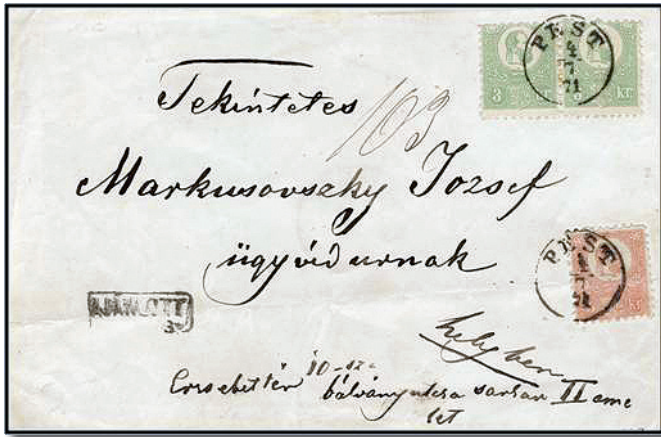 PEST
4
7
71
3 kr.
Tekintetes
103
Markusovszky Jozsef
ügyvéd urnak
PEST
4
7
71
AJÁNLOTT
helyben
Erzsebet tér 10-sz.
bálvány utcza sarkan II eme
let